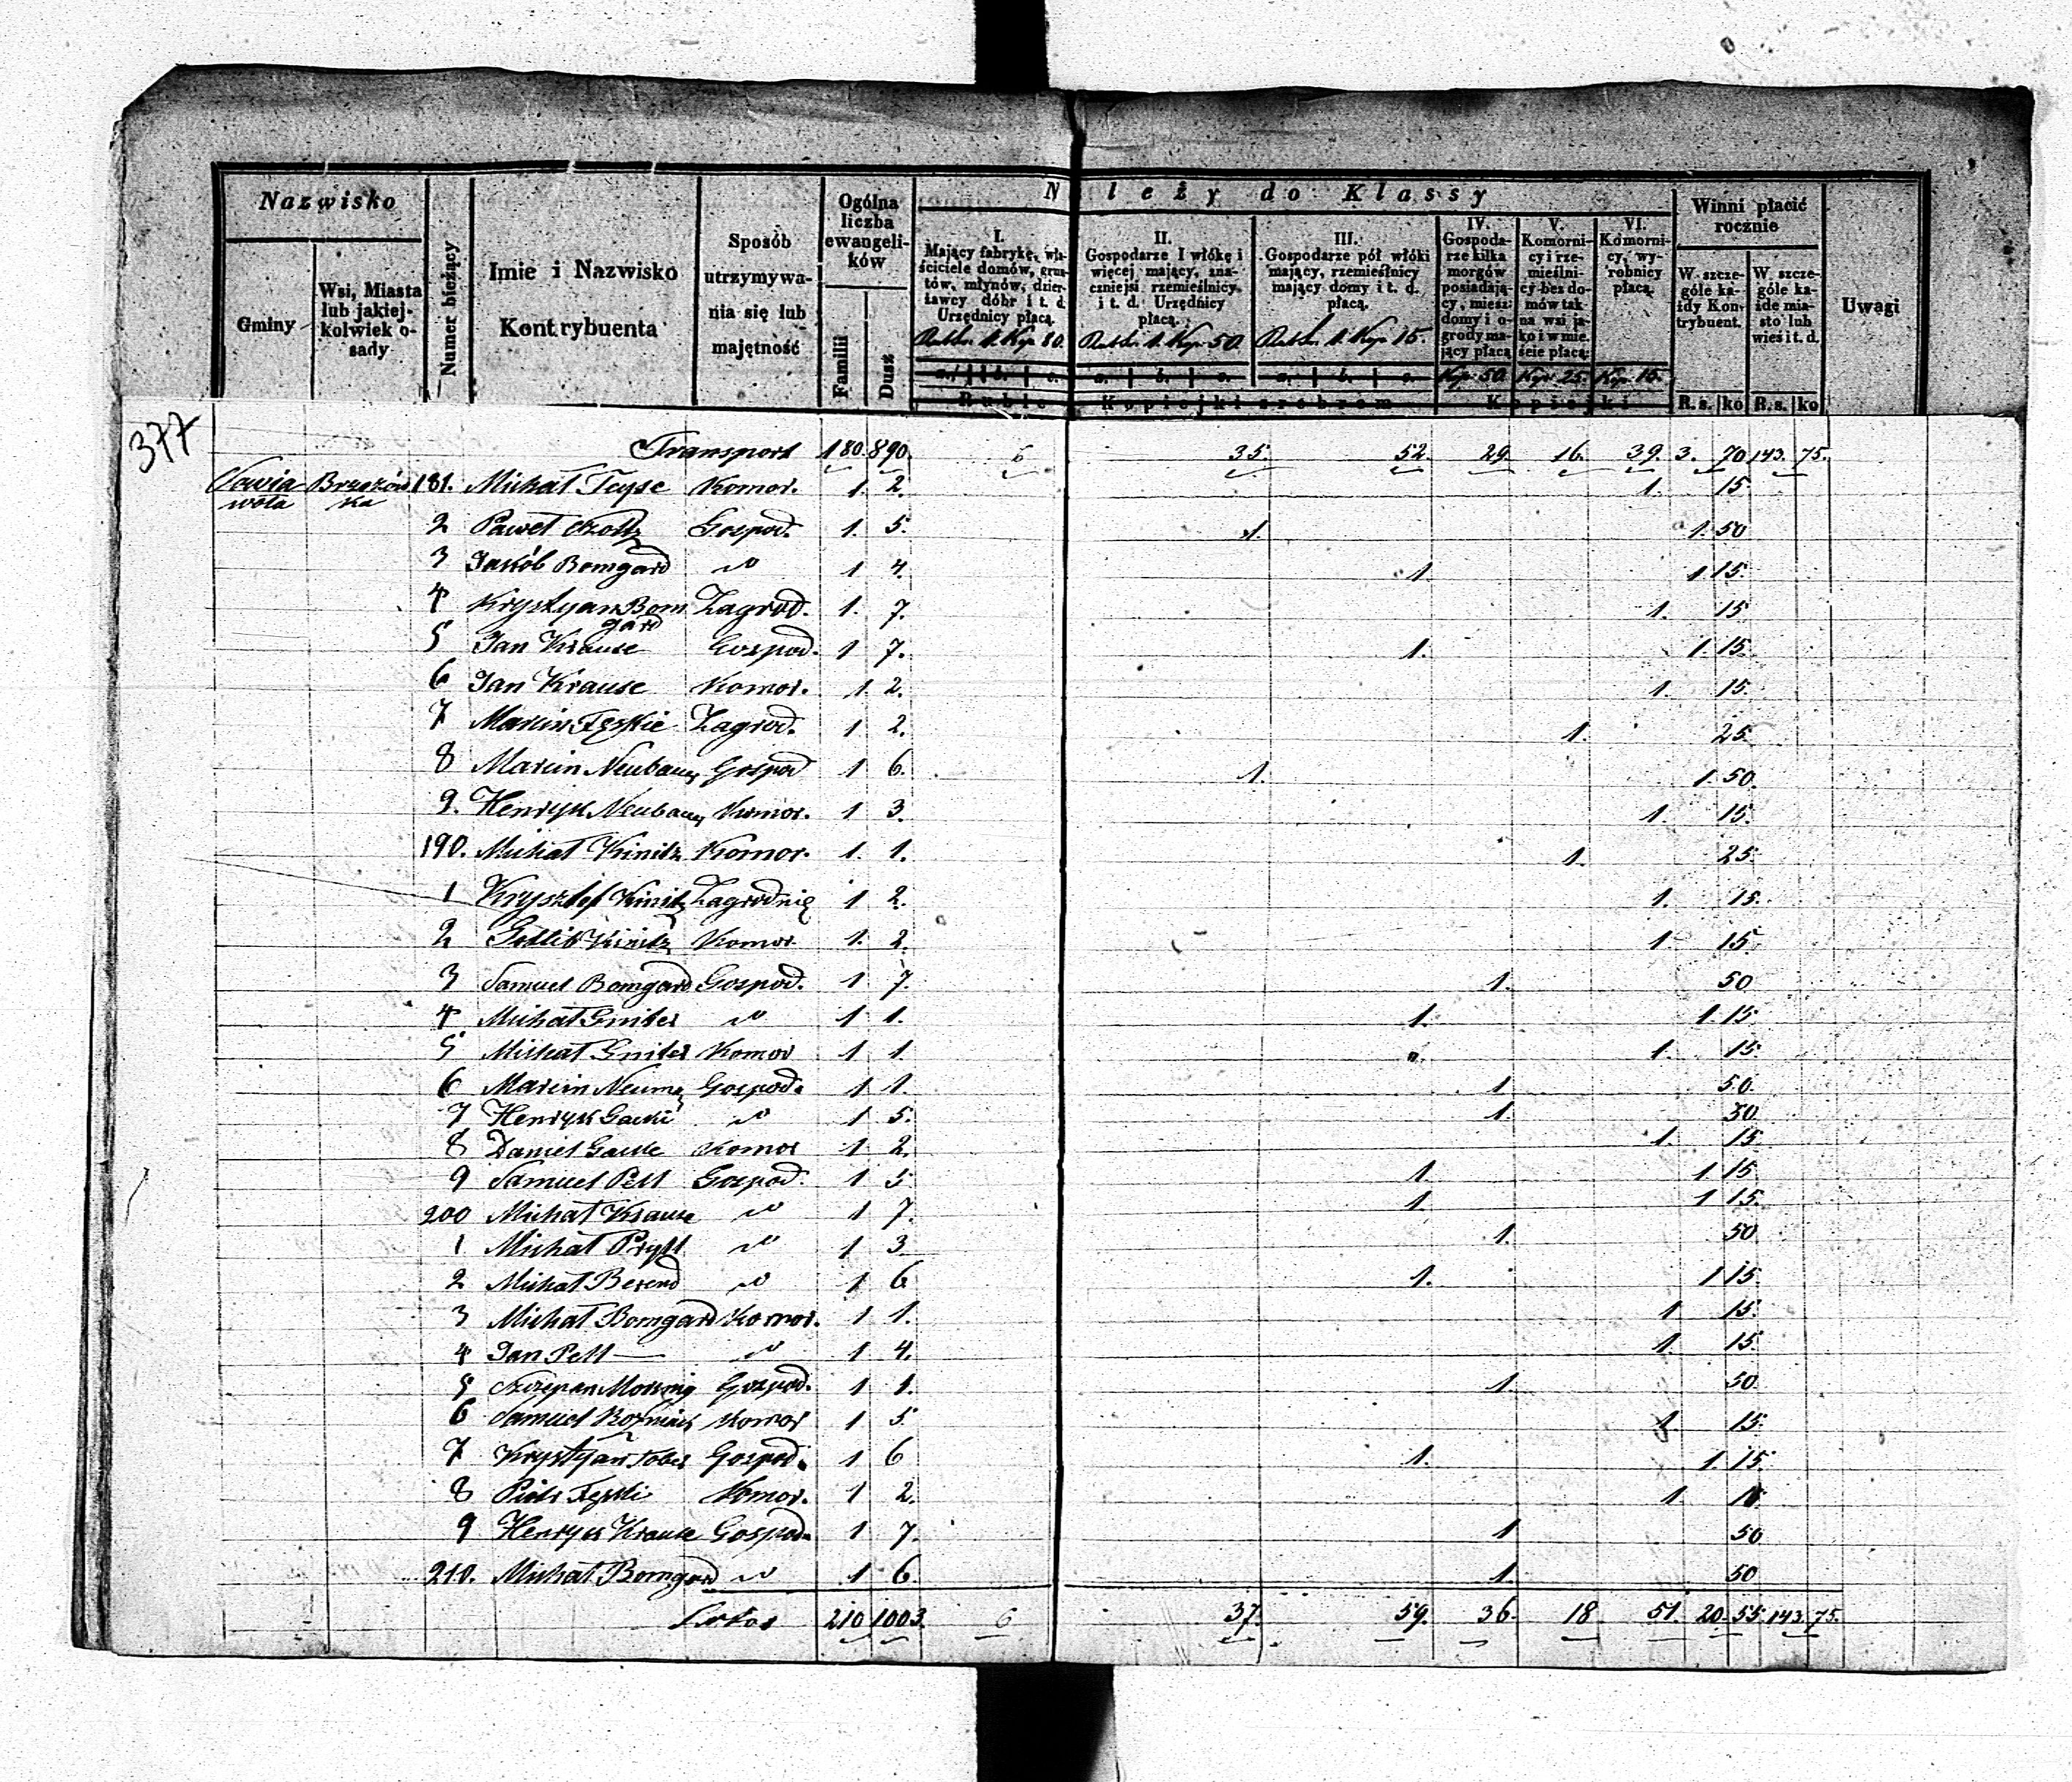 377
Nazwisko
Gminy
Wsi, Miasta lub jakiej-kolwiek o-sady
Numer bieżący
Imie i Nazwisko Kontrybuenta
Sposób utrzymywa-nia się lub majętność
Ogólna liczba ewangeli-ków
Familii
Dusz
N leży do Klassy
I. Mający fabrykę, wła-ściciele domów, grun-tów, młynów, dzier-żawcy dóbr i t. d. Urzędnicy płacą.
Rubli 1. Kop 80.
II. Gospodarze 1 włókę i więcej mający, zna-czniejsi rzemieślnicy, i t. d. Urzędnicy płacą.
Rubli 1. Kop 50.
III. Gospodarze pół włóki mający, rzemieślnicy mający domy i t. d. płacą.
Rubli 1. Kop 15.
IV. Gospoda-rze kilka morgów posiadają-cy, miesz: domy i o-grody ma-jący płacą
Kop. 50.
V. Komorni-cy i rze-mieślni-cy bez do-mów tak na wsi ja-ko i w mie-ście płacą:
Kop. 25.
VI. Komorni-cy, wy-robnicy płacą.
Kop. 15.
a. b. c. a. b. c. a. b. c.
Ruble Kopiejki srebrem Kopiejki
Winni płacić rocznie
W szcze-góle ka-żdy Kon-trybuent.
W szcze-góle ka-żde mia-sto lub wieś i t. d.
R. s. ko R. s. ko
Uwagi
Transport 180. 890. 6 35. 52. 29. 16. 39. 3. 70 143. 75.
wola Brzezów ka 181. Michał Komor. 1. 2. 1. 15
2 Paweł Gospod. 1. 5. 1. 1. 50
3 Jakób Bomgard " 1 4. 1. 1 15.
4 Krystyan Bomgard Zagrod. 1. 7. 1. 15
5 Jan Krause Gospod. 1 7. 1. 1. 15.
6 Jan Krause Komor. 1. 2. 1. 15.
7 Marcin Zagrod. 1 2. 1. 25.
8 Marcin Neubauer Gospod 1 6. 1. 1. 50.
9. Henryk Neubauer Komor. 1 3. 1. 15.
190. Michał Kinitz Komor. 1. 1. 1. 25.
1 Krysztof Kinitz Zagrodnik 1 2. 1. 15.
2 Gotlib Kinitz Komor. 1. 2. 1. 15.
3 Samuel Bomgard Gospod. 1 7. 1. 50
4 Michał " 1 1. 1. 1. 15
5 Michał Komor 1 1. 1. 15
6 Marcin Gospod. 1 1. 1 50.
7 Henryk " 1 5. 1. 50.
8 Daniel Komor 1 2. 1. 15
9 Samuel Pell Gospod. 1 5 1 1 15
200 Michał Krause " 1 7. 1. 1 15.
1 Michał " 1 3 1. 50
2 Michał Berend " 1 6 1. 1 15.
3 Michał Bomgard Komor. 1 1. 1 15.
4 Jan Pell " 1 4. 1. 15.
5 Szczepan Gospod. 1 1. 1 50.
6 Samuel Komor 1 5. 1. 15.
7 Krystyan Gospod. 1 6 1. 1. 15.
8 Piotr Komor. 1 2. 1 15
9 Henryk Krause Gospod. 1 7. 1 50
210. Michał Bomgard " 1 6. 1. 50
210 1003. 6 37. 59. 36. 18 51. 20. 55. 143. 75.